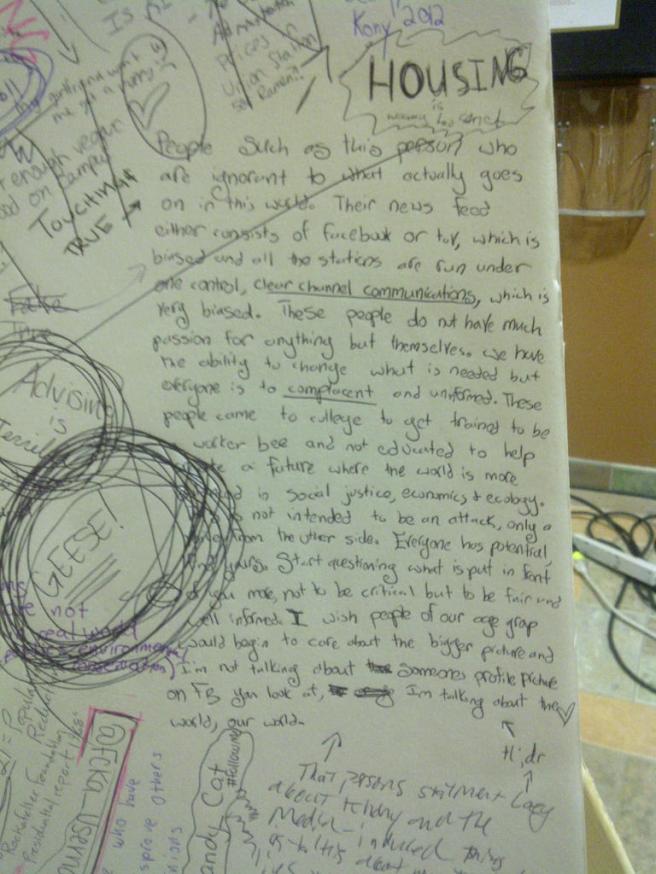 Kony 2012
HOUSING
is
People such as this person who
are ignorant to what actually goes
on in this world. Their news feed
either consists of facebook or t.v, which is
biased and all the stations are run under
one control, clear channel communications, which is
very biased. These people do not have much
passion for anything but themselves. we have
the ability to change what is needed but
everyone is to complacent and uninformed. These
people came to college to get trained to be
worker bee and not educated to help
a future where the world is more
in social justice, economics & ecology.
is not intended to be an attack, only a
from the other side. Everyone has potential,
find yours. Start questioning what is put in font
of you more, not to be critical but to be fair and
well informed. I wish people of our age grap
would begin to care about the bigger picture and
I'm not talking about someones profile picture
on FB you look at, I'm talking about the
world, our world.
tl;dr
Lazy
That persons statment
about and the
Media-induced things
Is
Admin
prices
Union Station
sell Ramen!!
girlfriend won't
me
enough vegan
food on campus
Touching
TRUE
Fake
True
Advising
is
Terrible
GEESE!
are not
real world
environmental
conservation)
Popula
Reduction
Rockefeller Foundation
Presidential report
yes"
@FCKA_USERN
who have
improve others
andy Cat
#following